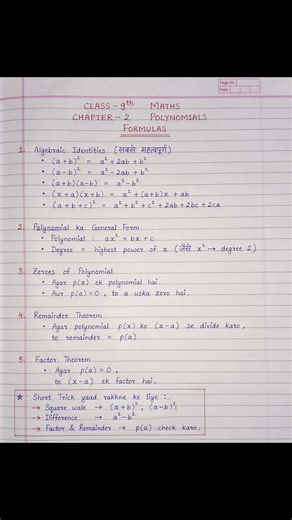 Page No.
Date
CLASS-9th MATHS
CHAPTER-2 POLYNOMIALS
FORMULAS
1. Algebraic Identities (सबसे महत्वपूर्ण)
• (a+b)² = a² + 2ab + b²
• (a-b)² = a² - 2ab + b²
• (a+b)(a-b) = a² - b²
• (x+a)(x+b) = x² + (a+b)x + ab
• (a+b+c)² = a² + b² + c² + 2ab + 2bc + 2ca
2. Polynomial ka General Form
• Polynomial : ax² + bx + c
• Degree = highest power of x (जैसे x² → degree 2)
3. Zeroes of Polynomial
• Agar p(x) ek polynomial hai.
• Aur p(a) = 0, to a uska zero hai.
4. Remainder Theorem
• Agar polynomial p(x) ko (x-a) se divide karo,
to remainder = p(a)
5. Factor Theorem
• Agar p(a) = 0,
to (x-a) ek factor hai.
★ Short Trick yaad rakhne ke liye :-
→ Square wale → (a+b)², (a-b)²
→ Difference → a² - b²
→ Factor & Remainder → p(a) check karo.